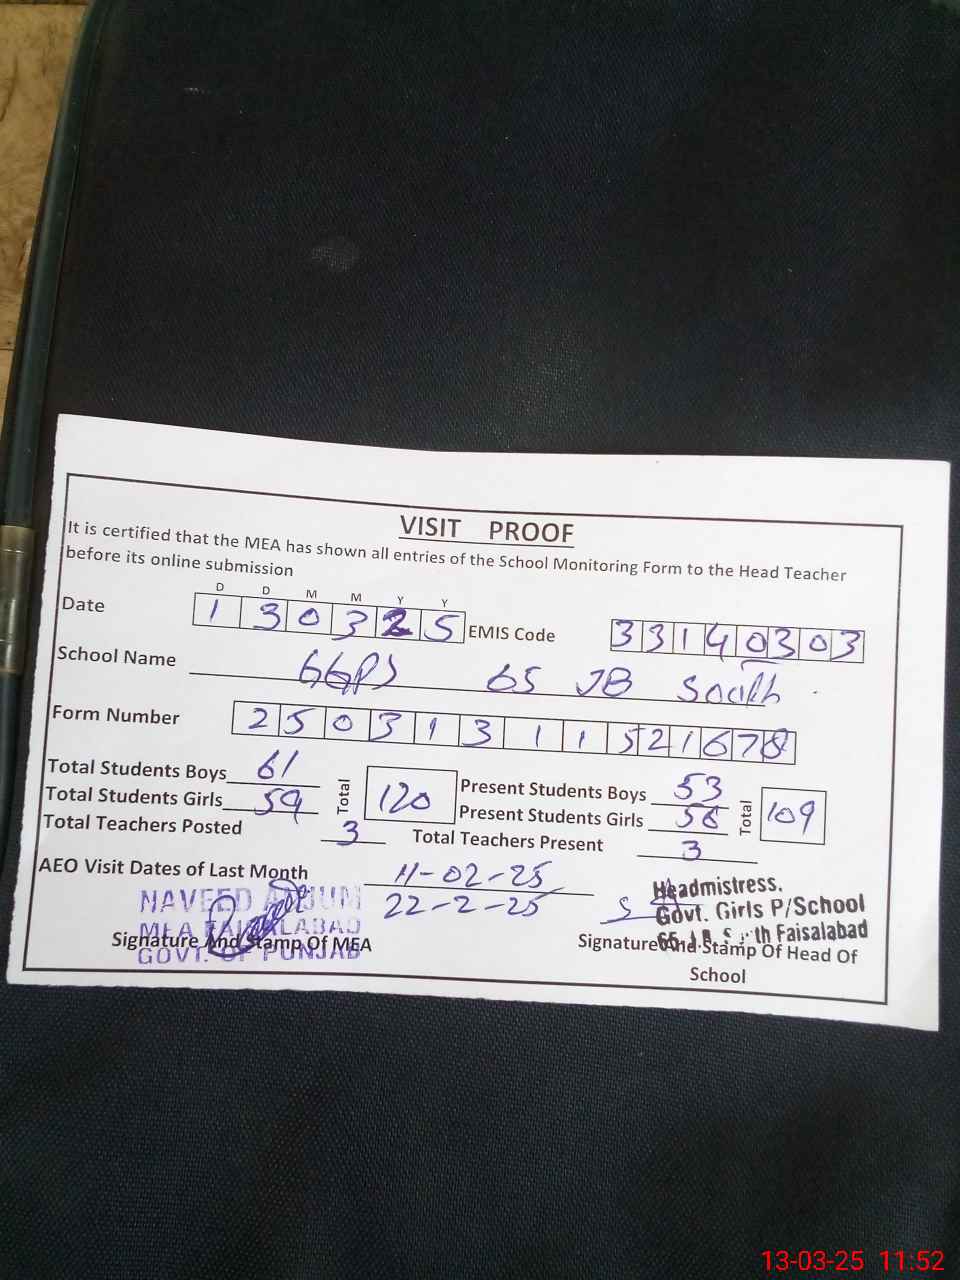 VISIT PROOF
It is certified that the MEA has shown all entries of the School Monitoring Form to the Head Teacher
before its online submission
D D M M Y Y
Date 1 3 0 3 2 5 EMIS Code 3 3 1 4 0 3 0 3
School Name GGPS 65 JB South
Form Number 2 5 0 3 1 3 1 1 5 2 1 6 7 8
Total Students Boys 61 Total 120 Present Students Boys 53 Total 109
Total Students Girls 59 Present Students Girls 56
Total Teachers Posted 3 Total Teachers Present 3
AEO Visit Dates of Last Month 11-02-25
22-2-25
NAVEED ANJUM
MEA FAISALABAD
GOVT. OF PUNJAB
Signature And Stamp Of MEA
Headmistress.
Govt. Girls P/School
65 J.B. South Faisalabad
Signature And Stamp Of Head Of
School
13-03-25 11:52